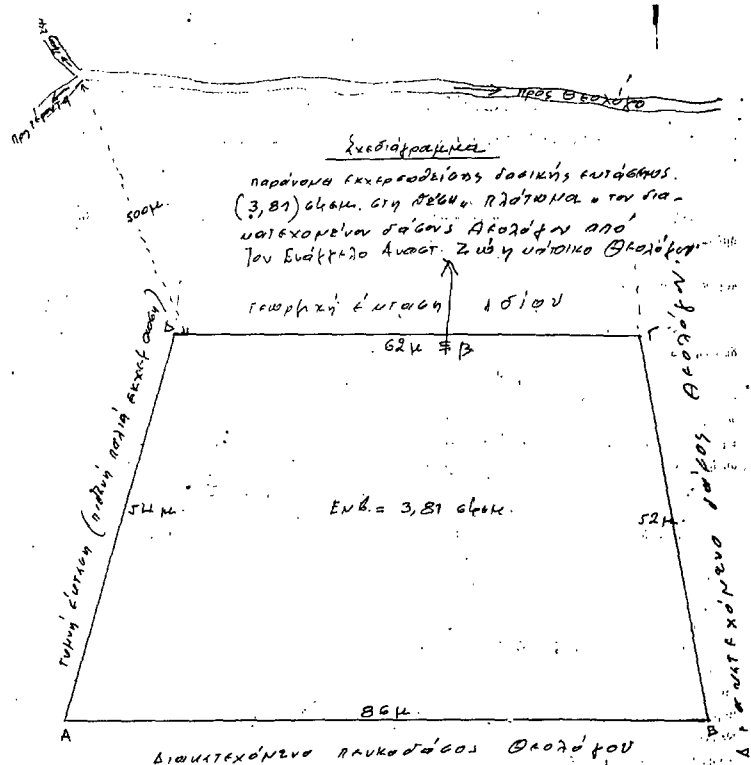 προς Θεολόγο
Σχεδιάγραμμα
παράνομα εκχερσωθείσης δασικής εκτάσεως.
(3,81) στρεμ. στη θέση "Πλάτωμα" του δια-
κατεχομένου δάσους Θεολόγου από
τον Ευάγγελο Αναστ. κάτοικο Θεολόγου
500μ
γεωργική έκταση ιδίου
Δ
Γ
62μ
Β
γυμνή έκταση (πιθανή παλιά εκχέρσωση)
54μ.
Εμβ. = 3,81 στρεμ.
52μ.
Διακατεχόμενο δάσος Θεολόγου
86μ
Α
Β
Διακατεχόμενο πευκοδάσος Θεολόγου